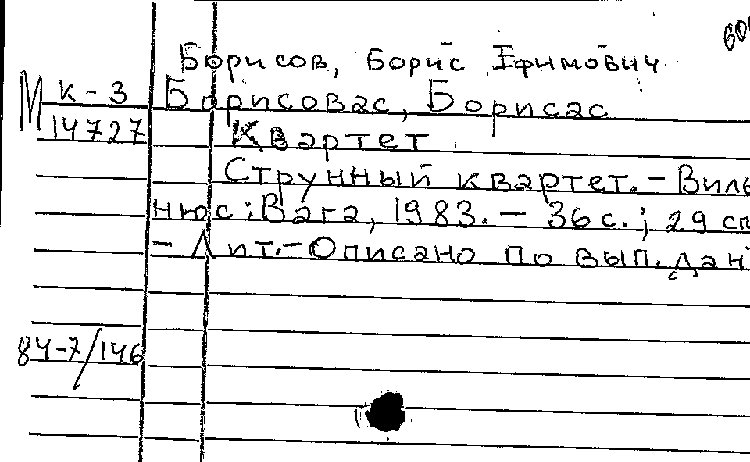 Борисов, Борис Ефимович
М К-3 Борисовас, Борисас
14727 Квартет
Струнный квартет. - Виль
нюс: Вага, 1983. - 36 с.; 29 см
- Лит. - Описано по вып. дан
84-7/146